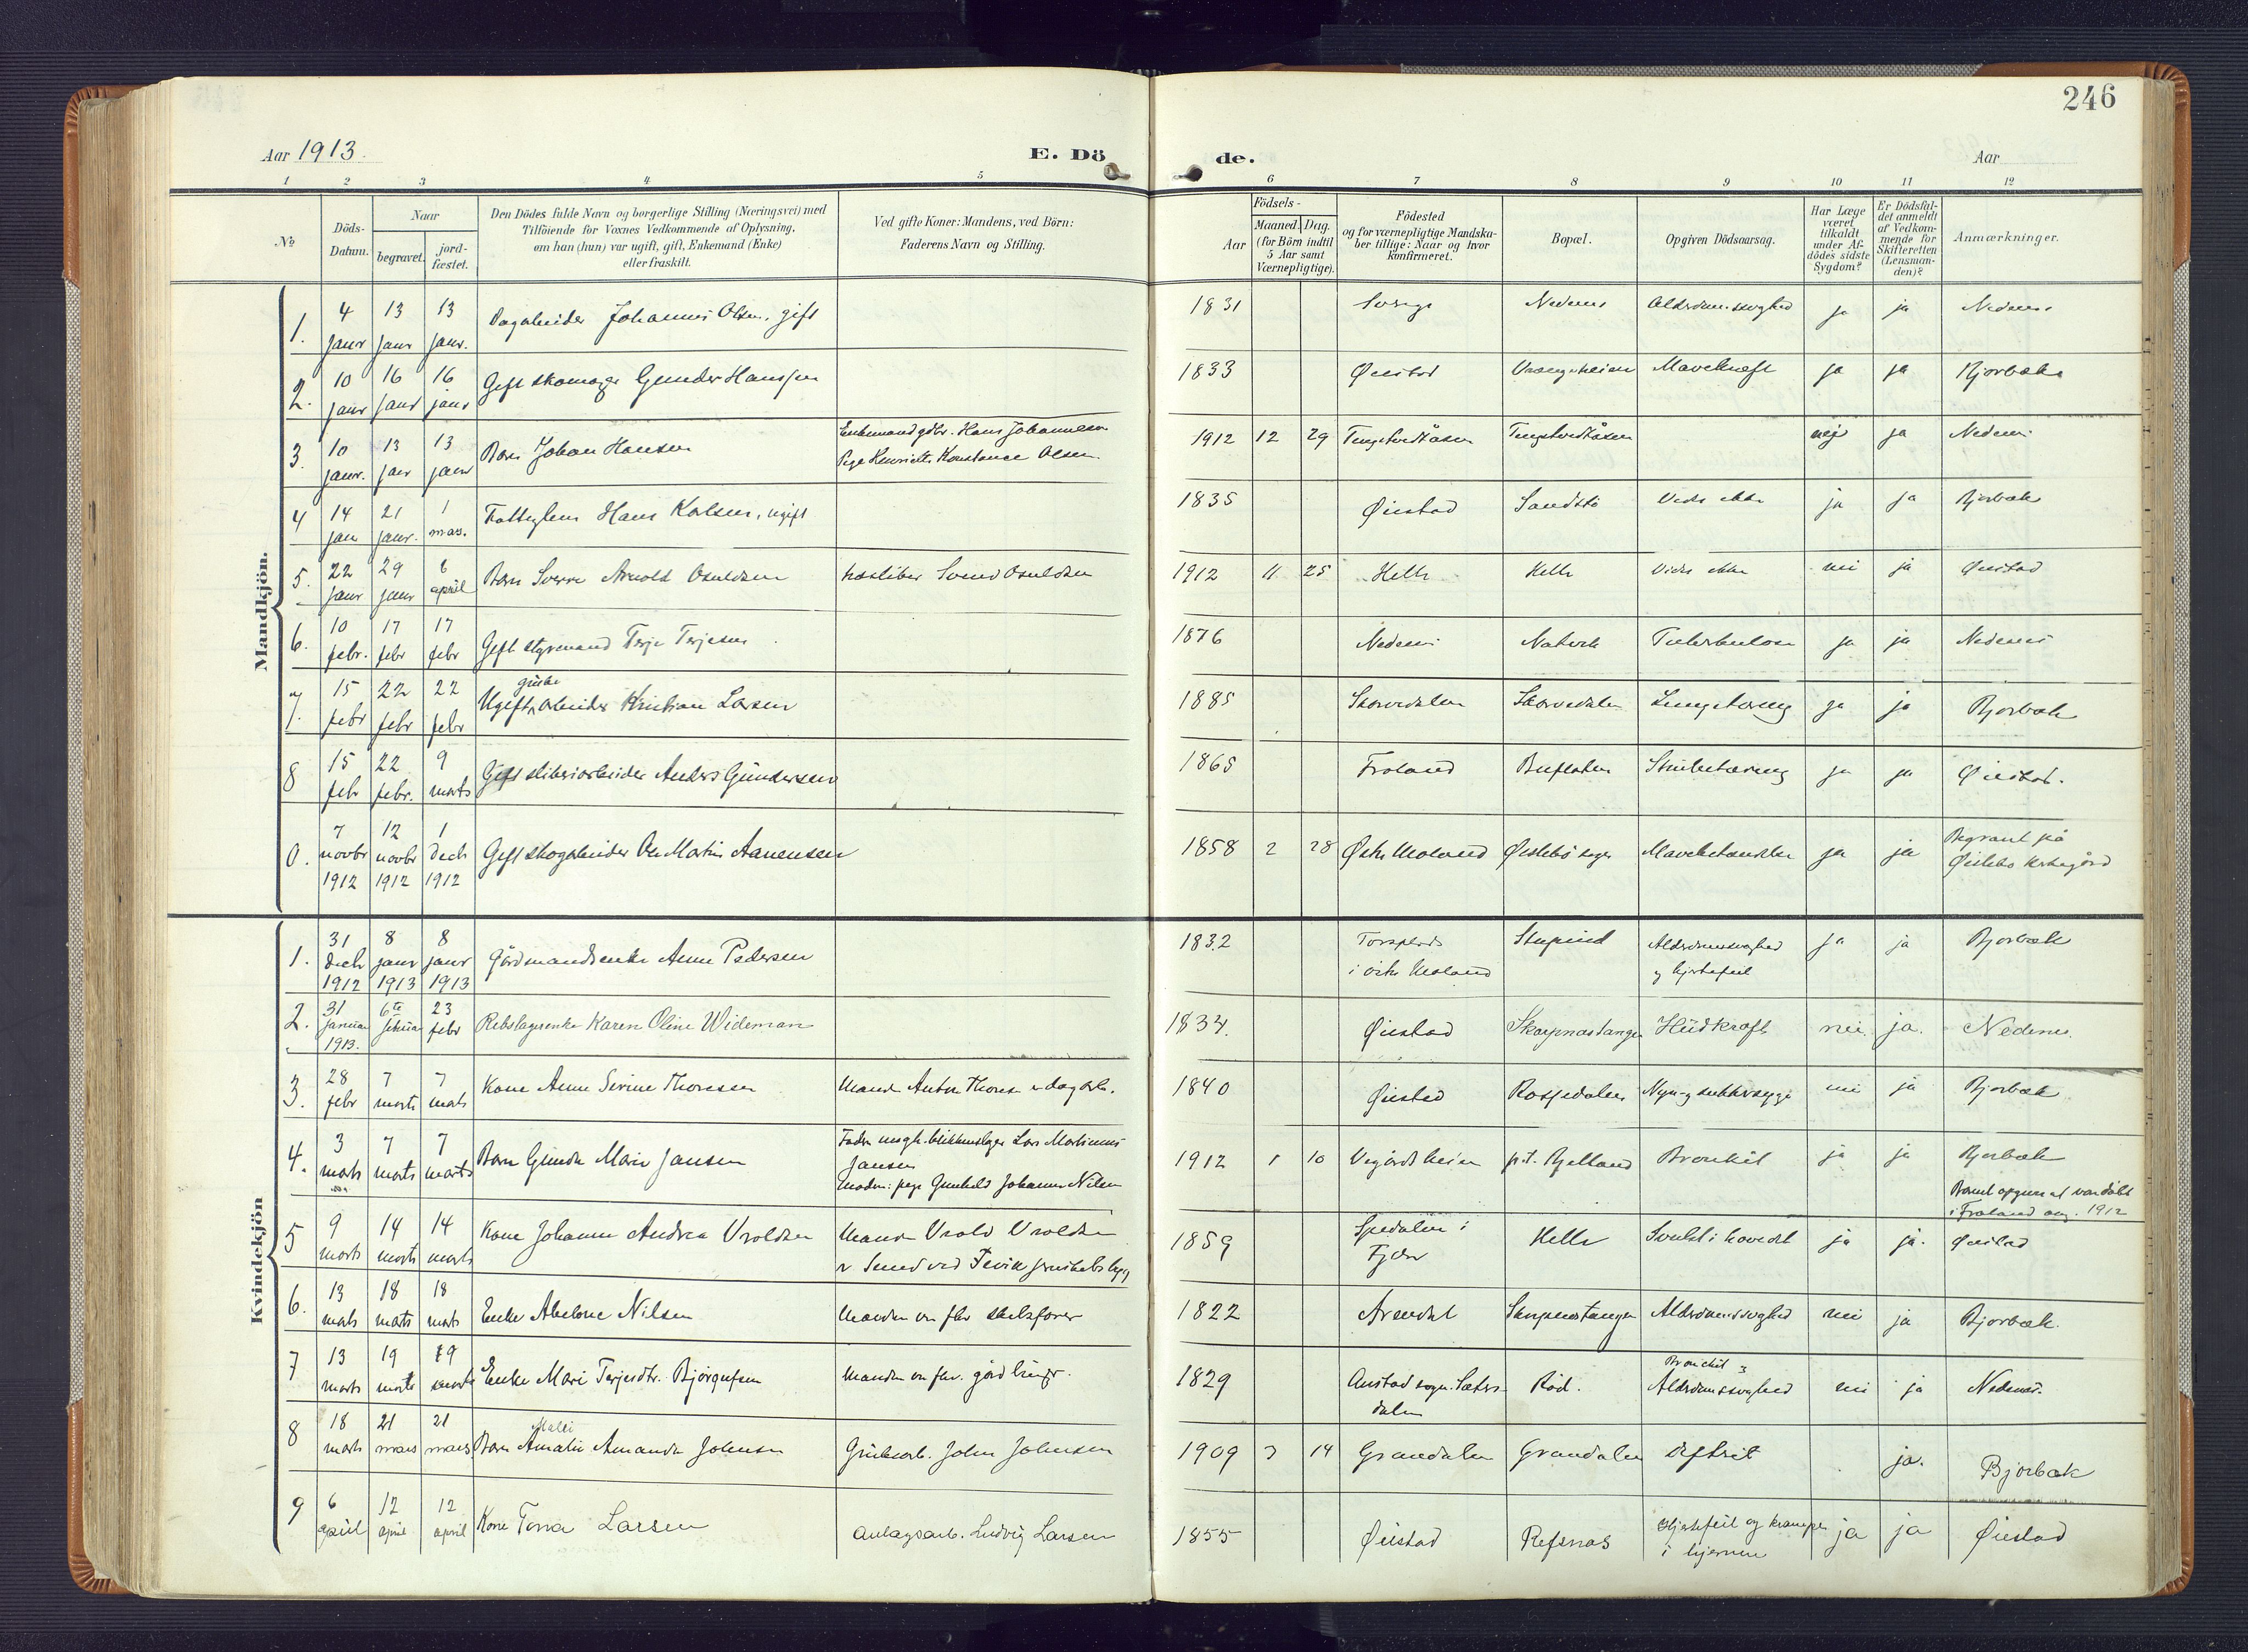 246
Aar 1913.
E. Dö de.
Aar
1 2 3 4 5 6 7 8 9 10 11 12
№
Döds-Datum.
Naar
begravet.
jord-fæstet.
Den Dödes fulde Navn og borgerlige Stilling (Næringsvei) med
Tilföiende for Voxnes Vedkommende af Oplysning,
om han (hun) var ugift, gift, Enkemand (Enke)
eller fraskilt.
Ved gifte Koner: Mandens, ved Börn:
Faderens Navn og Stilling.
Födsels-
Aar
Maaned. Dag.
(for Börn indtil
5 Aar samt
Værnepligtige).
Födested
og for værnepligtige Mandska-
ber tillige: Naar og hvor
konfirmeret.
Bopæl.
Opgiven Dödsaarsag.
Har Læge
været
tilkaldt
under Af-
dödes sidste
Sygdom?
Er Dödsfal-
det anmeldt
af Vedkom-
mende for
Skifteretten
(Lensman-
den)?
Anmærkninger.
Mandkjön.
1. 4 janr 13 janr 13 janr. Johannes Olsen, gift 1831 Nedenes ja ja Nedenes
2. 10 janr 16 janr 16 janr Gift skomager Gunder Hanssen 1833 Øiestad Mavekræft ja ja Bjorbæk
3. 10 janr. 13 janr 13 janr Barn Johan Hansen Enkemand gdbr. Hans Johannesen
Pige Henriette Konstance Olsen. 1912 12 29 nei ja Nedenes
4 14 jan 21 janr. 1 mars. Hans Kalsen, ugift 1835 Øiestad Sandstø Vides ikke ja ja Bjorbæk
5. 22 janr 29 janr 6 april Barn Sverre Arnold Osuldsen Svend Osuldsen 1912 11 25 Helle Helle Vides ikke nei ja Øiestad
6. 10 febr. 17 febr 17 febr Gift styrmand Terje Terjesen 1876 Nedenes Natvik Tuberkulose ja ja Nedenes
7. 15 febr 22 febr 22 febr Ugift grube arbeider Kristian Larsen 1885 Skarvedalen Skarvedalen Lungetæring ja ja Bjorbæk
8 15 febr 22 febr. 9 marts Gift sliberiarbeider Anders Gundersen 1865 Froland Buflaten Strubetæring ja ja Øiestad.
0. 7 novbr 1912 12 novbr 1912 1 decb 1912 Gift skogarbeider Ole Martin Aanensen 1858 2 28 Østre Moland Øislebø sogn ja ja Begravet på
Øislebø kirkegård
Kvindekjön
1. 31 decb 1912 8 janr 1913 8 janr 1913 Gårdmandsenke Anne Pedersen 1832
i østre Moland Alderdomssvaghed
og hjertefeil ja ja Bjorbæk
2. 31 januar 1913. 6te februar 23 febr Rebslagerenke Karen Oline Wideman 1834. Øiestad Skarpnestangen Hudkræft nei ja. Nedenes.
3. 28 febr 7 marts 7 marts Kone Anne Serine Thoresen Mand Anton Thoresen dagarb. 1840 Øiestad ja Bjorbæk
4. 3 marts 7 marts 7 marts Barn Gunda Marie Jansen Fader ungk. blikkenslager Lars Martinius
Jansen
Moder: pige Gunhild Johanne Nilsen 1912 1 10 Vegårdsheien p.t. Bjelland Bronkit ja ja Bjorbæk
Barnet opgives at være døbt
i Froland aug. 1912
5 9 marts 14 marts 14 marts Kone Johanne Andrea Vroldsen Mand Vrold Vroldsen
er Smed ved Fevik 1859 Spedalen i
Fjære Helle Svulst i hovedet ja ja. Øiestad
6. 13 marts 18 marts 18 marts Enke Abelone Nilsen Manden var fhv skibsfører 1822 Arendal Skarpnestangen Alderdomssvaghed nei ja Bjorbæk.
7 13 marts 19 marts 19 marts Enke Mari Terjesdtr. Bjørgufsen Manden var fhv. gårdbruger. 1829 Austad sogn. Sæters-
dalen Röd. Bronchit &
Alderdomssvaghed nei ja Nedenes.
8 18 marts 21 mars 21 mars Barn Amalie Malli Amanda Johnsen Grubearb. John Johnsen 1909 3 14 Grændalen Grændalen Difterit ja. Bjorbæk
9 6 april 12 april 12 april Kone Tona Larsen Anlagsarb. Ludvig Larsen 1855 Øiestad Refsnæs Hjertefeil og krampe
i hjernen ja ja Øiestad